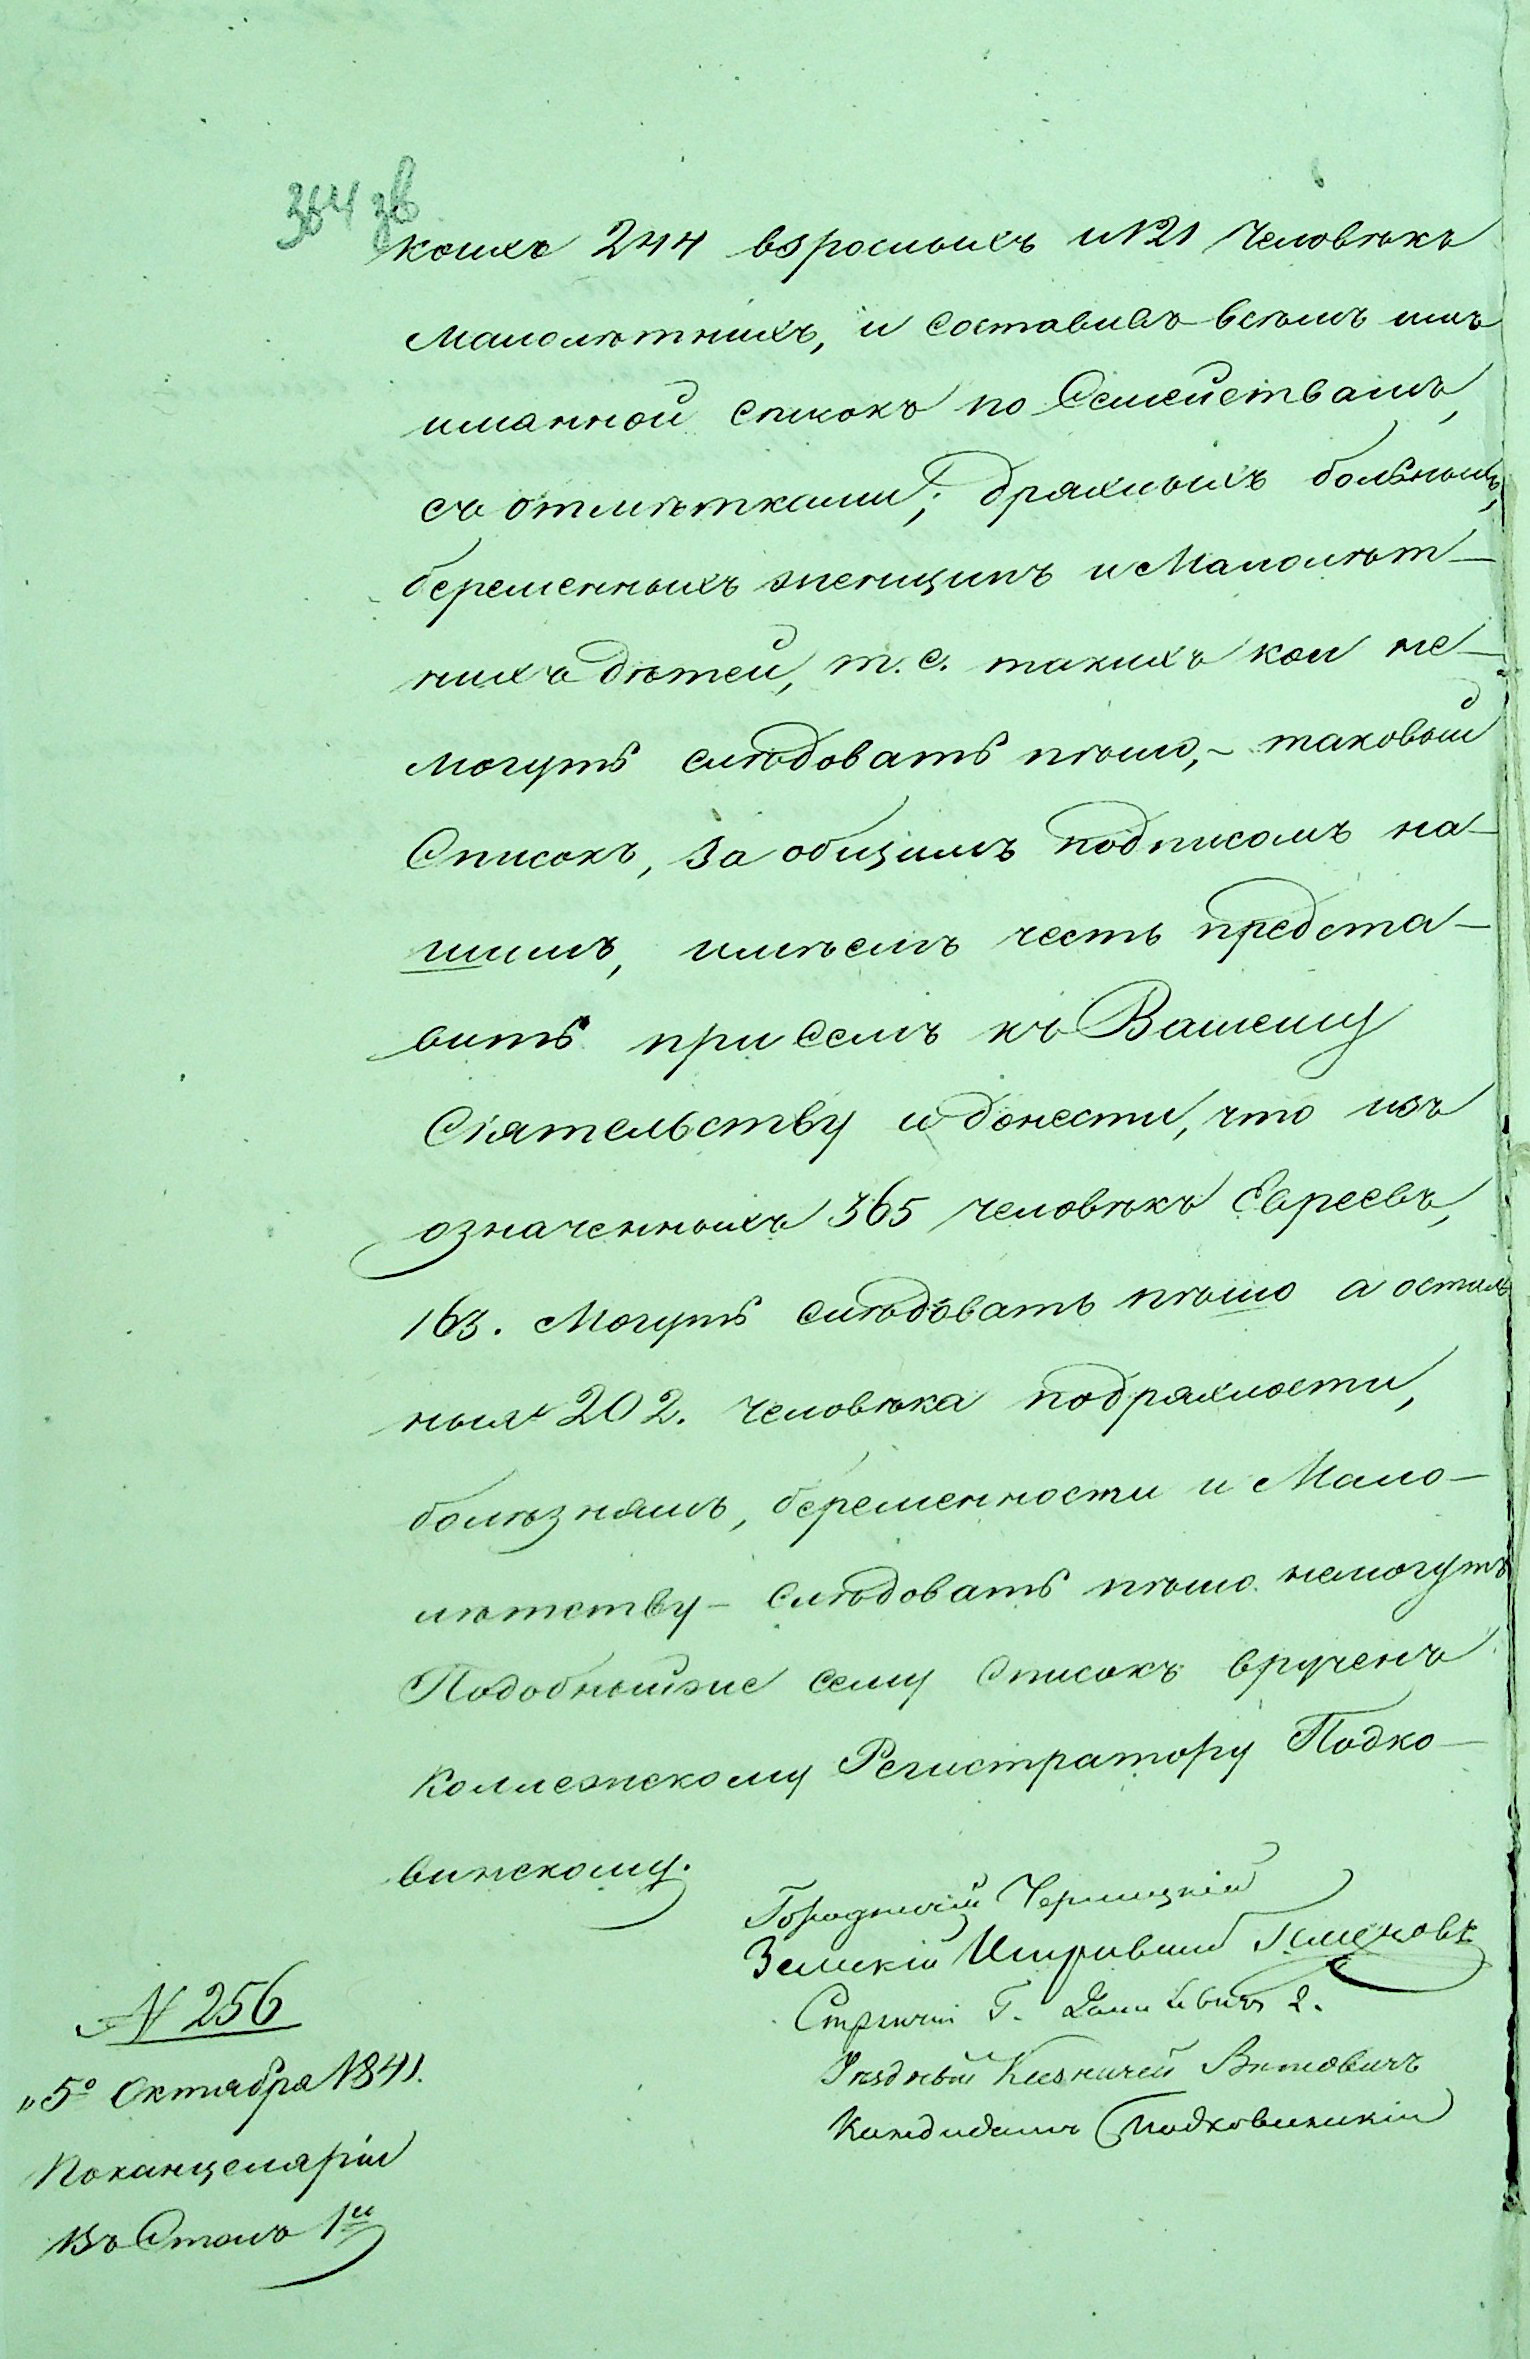 коихъ 244 взрослыхъ и 121 человѣкъ
малолѣтнихъ, и составивъ всѣмъ имъ
иманной списокъ по Семействамъ,
съ отмѣтками, дряхлыхъ больныхъ,
беременныхъ женщинъ и Малолѣт-
нихъ дѣтей, т.е. такихъ кои не-
могутъ слѣдовать пѣшо,- таковый
Списокъ, за общимъ подписомъ на-
шимъ, имѣемъ честь предста-
вить при семъ къ Вашему
Сіятельству и донести, что изъ
означенныхъ 365 человѣкъ Евреевъ,
163. Могутъ слѣдовать пѣшо а осталь
ныя 202. человѣка подряхлости,
болѣзнямъ, беременности и Мало-
лѣтству - слѣдовать пѣшо немогутъ
Подобныйже сему Списокъ врученъ
Коллежскому Регистратору Подко-
винскому.
Городничій
Земскій Исправникъ
Стряпчій Г.
Уѣздный Казначей Витовичъ
Кандидатъ Подковинскій
N 256
„5º Октября 1841.
Поканцеляріи
Въ Столъ 1й